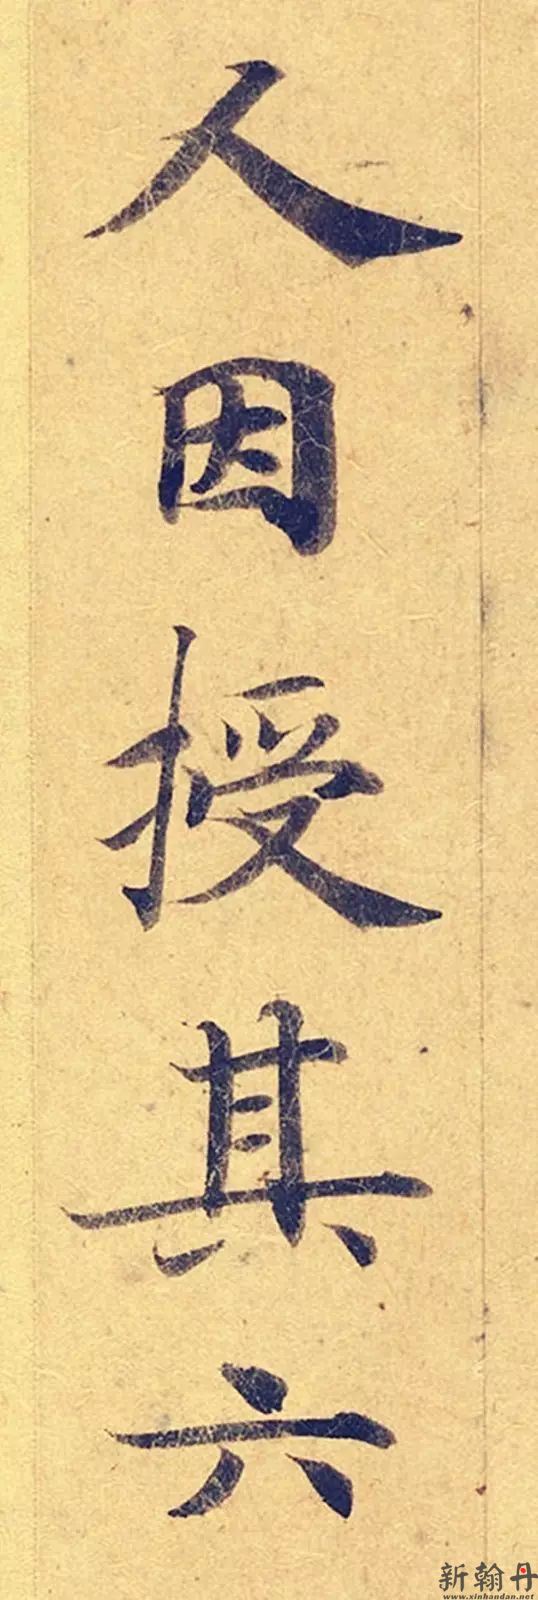 人因授其六
新翰丹
www.xinhandan.net